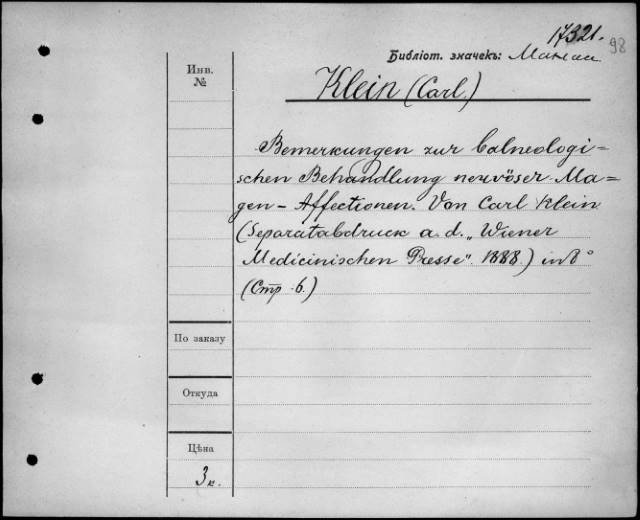 17321.
98
Библіот. значекъ:
Инв.
№
Klein (Carl.)
Bemerkungen zur balneologi=
schen Behandlung nervöser Ma=
gen-Affectionen. Von Carl Klein
(Separatabdruck a. d. „Wiener
Medicinischen Presse“. 1888.) in 8°
(Стр. 6.)
По заказу
Откуда
Цѣна
3 к.